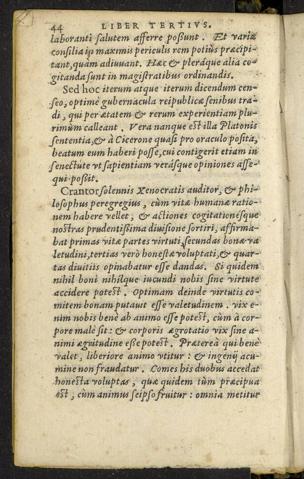 44 LIBER TERTIVS.
laboranti salutem afferre poßunt. Et variæ
consilia ip maximis periculis rem potiùs præcipi-
tant, quàm adiuuant. Hæc & pleráque alia co-
gitanda sunt in magistratibus ordinandis.
Sed hoc iterum atque iterum dicendum cen-
seo, optimè gubernacula reipublicæ senibus tra-
di, qui per ætatem & rerum experientiam plu-
rimùm calleant. Vera nanque est illa Platonis
sententia, & à Cicerone quasi pro oraculo posita,
beatum eum haberi posse, cui contigerit etiam in
senectute vt sapientiam verásque opiniones asse-
qui poßit.
Crantor solennis Xenocratis auditor, & phi-
losophus peregregius, cùm vitæ humanæ ratio-
nem habere vellet, & actiones cogitationésque
nostras prudentißima diuisione sortiri, affirma-
bat primas vitæ partes virtuti, secundas bonæ va-
letudini, tertias verò honestæ voluptati, & quar-
tas diuitiis opinabatur esse dandas. Si quidem
nihil boni nihílque iucundi nobis sine virtute
accidere potest. Optimam deinde virtutis co-
mitem bonam putauit esse valetudinem. vix e-
nim nobis benè ab animo esse potest, cùm à cor-
pore malè sit: & corporis ægrotatio vix sine a-
nimi ægritudine eße potest. Præterea qui benè
valet, liberiore animo vtitur: & ingenij acu-
mine non fraudatur. Comes his duobus accedat
honesta voluptas, quæ quidem tùm præcipua
est, cùm animus seipso fruitur: omnia metitur